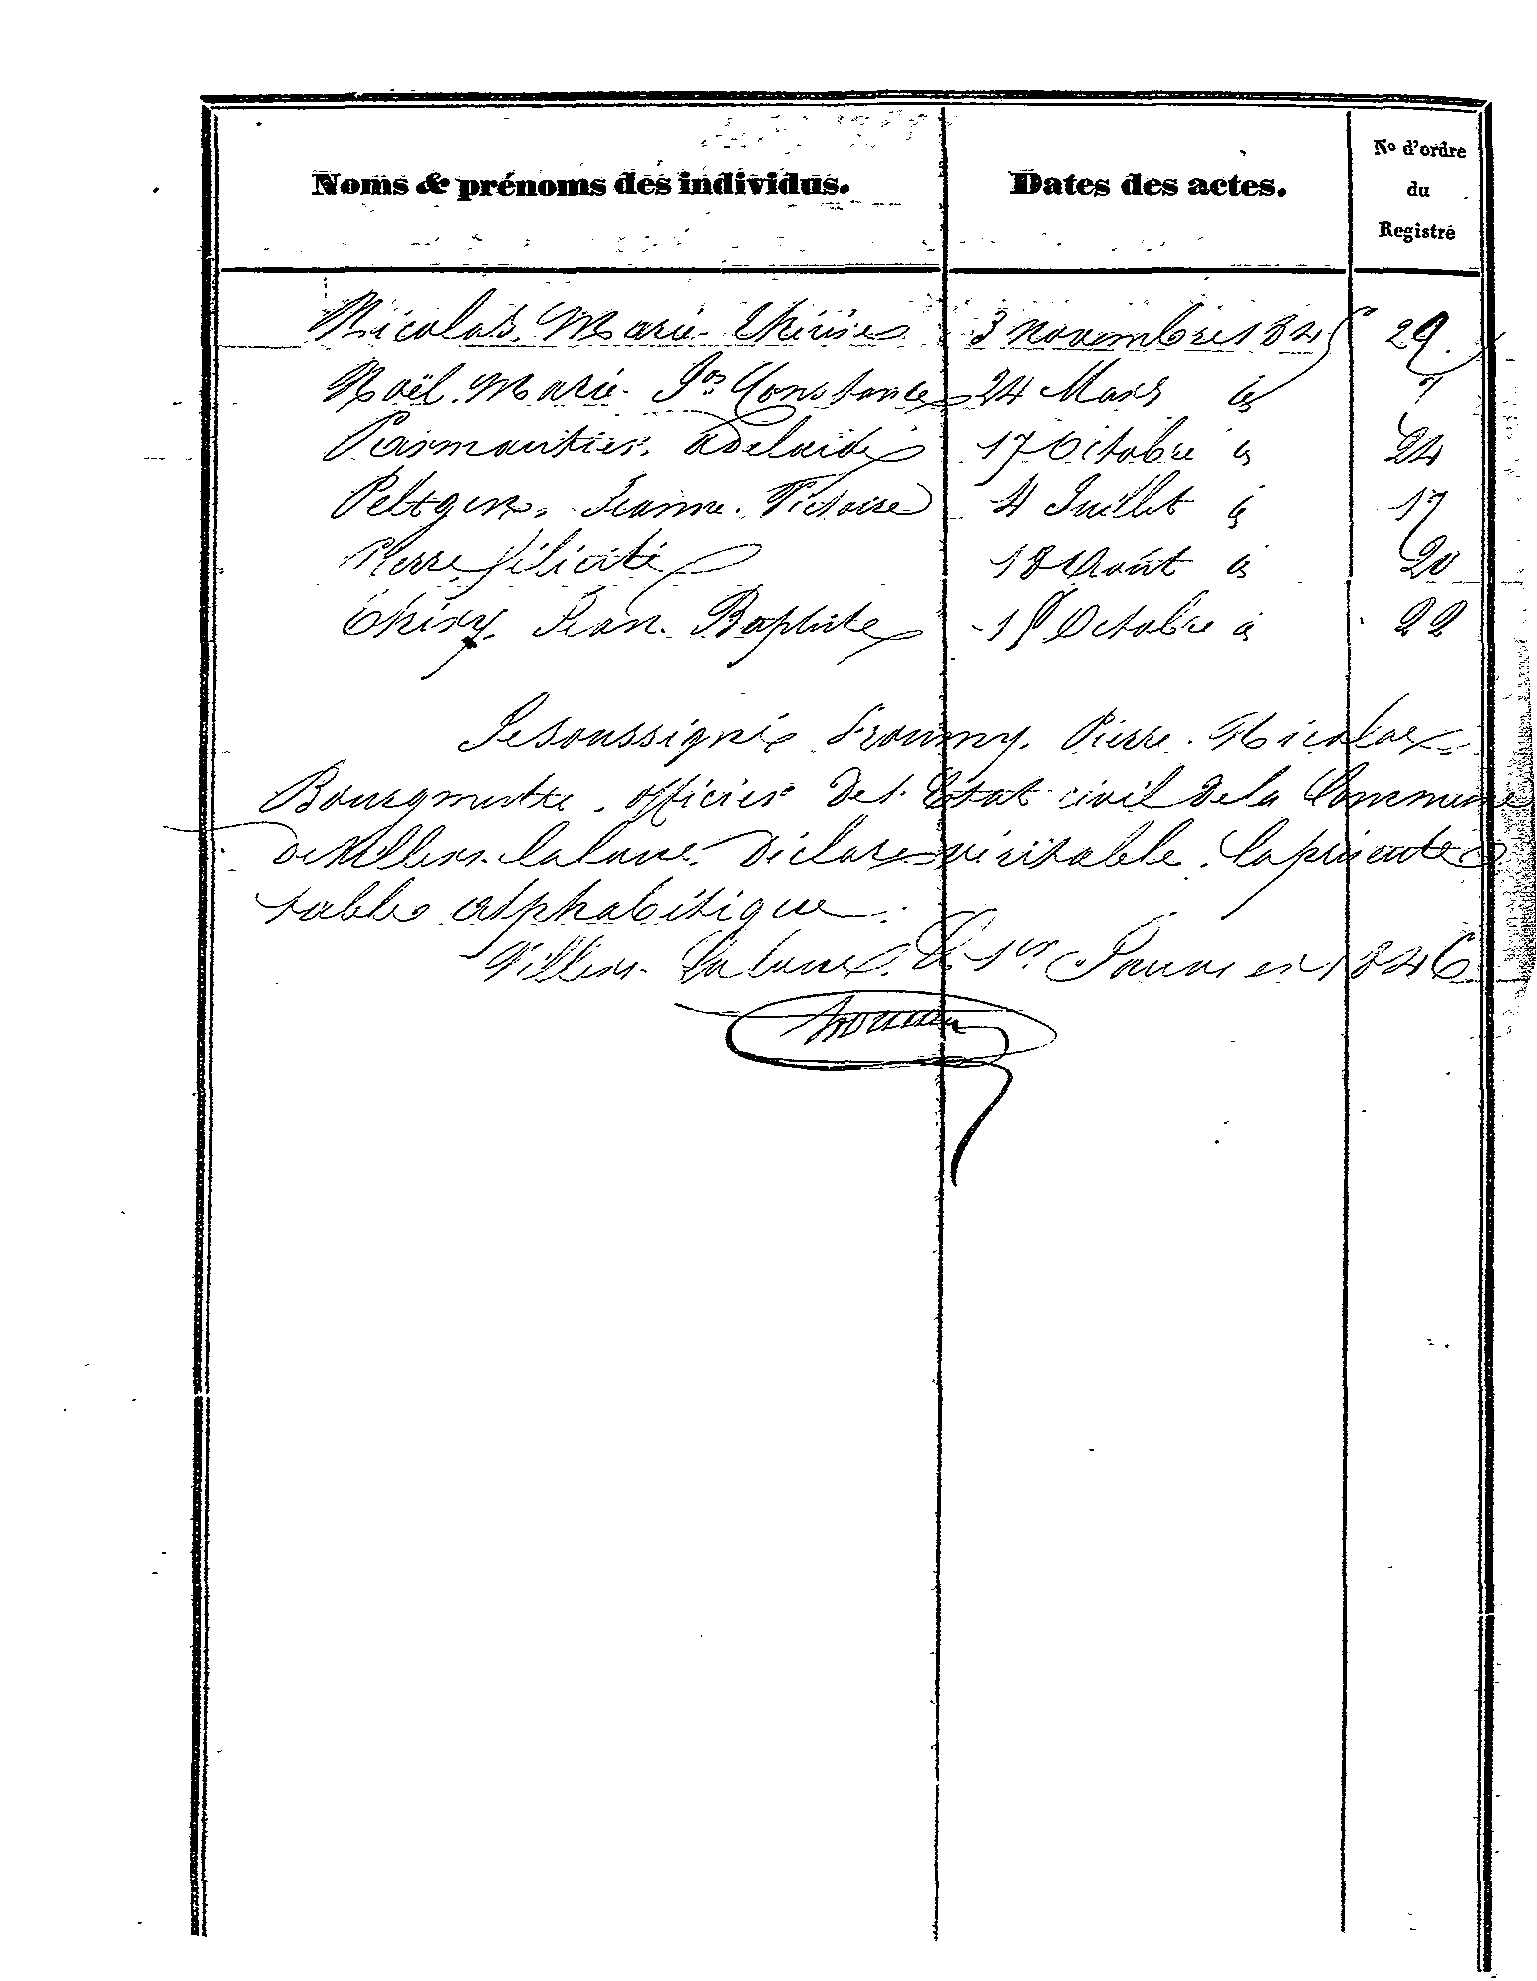 Noms & prénoms des individus. Dates des actes. No d'ordre du Registre
Nicolas. Marie Thérèse 3 novembre 1845 29
Noël. Marie. Jos. Constance 24 Mars id 7
Parmantier. Adelaide 17 Octobre id 24
Peltgen. Jeanne. Victoire 4 Juillet id 17
Pierre Félicité 18 Août id 20
Thiry. Jean. Baptiste Octobre id 22
Je soussigné Froumy. Pierre. Nicolas
Bourgmestre. officier de l'Etat civil de la Commune
de Villers. laloue. Déclare véritable. la présente
table alphabétique.
Villers. La loue. Le 1er Janvier 1846